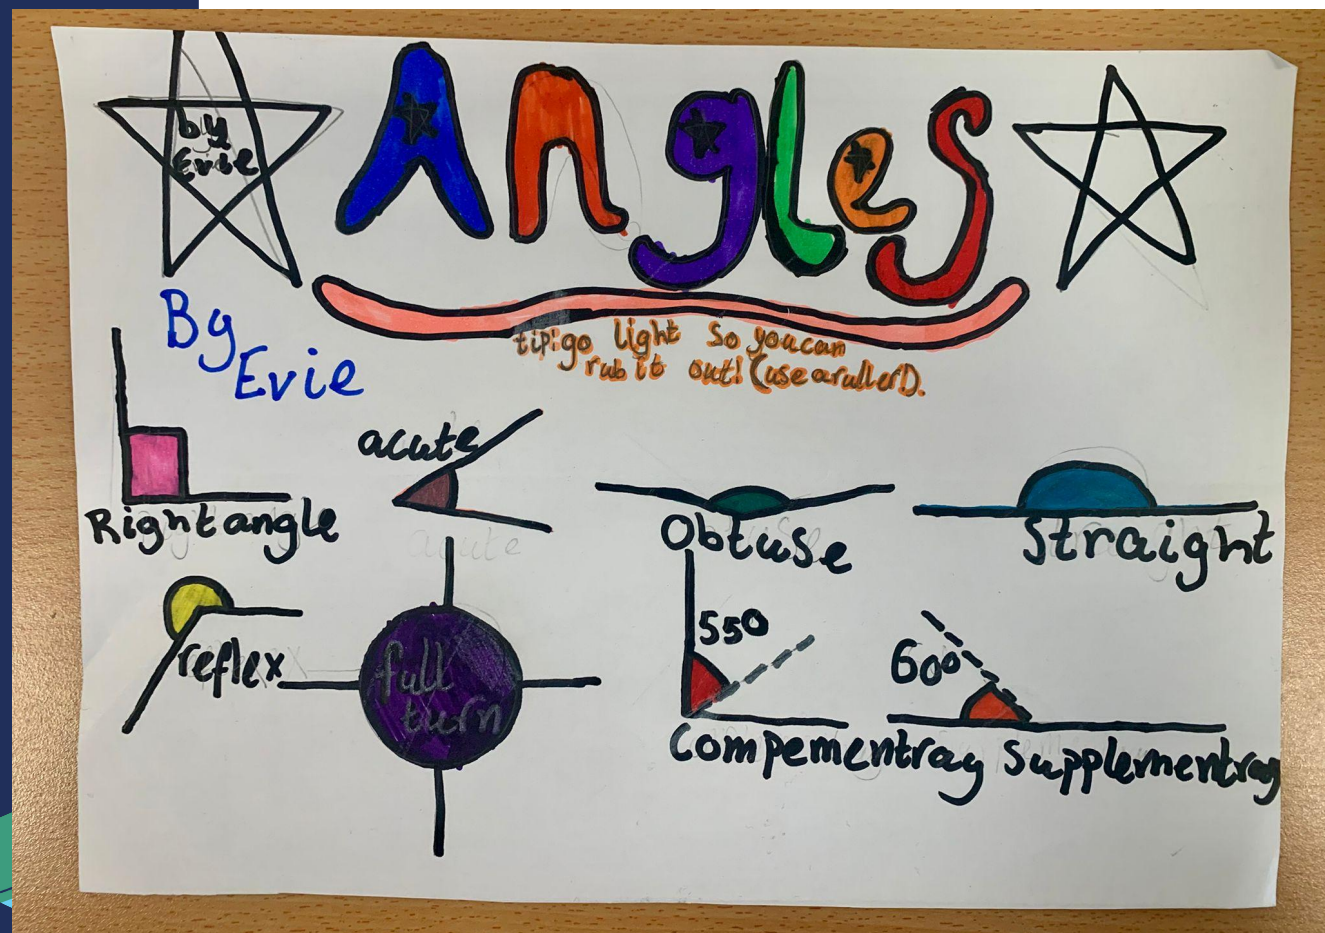 by
Evie
Angles
By
Evie
tip: go light so you can
rub it out! (use a ruler!).
acute
Right angle
acute
Obtuse
Straight
reflex
full
turn
55°
60°
Compementray
Supplementray